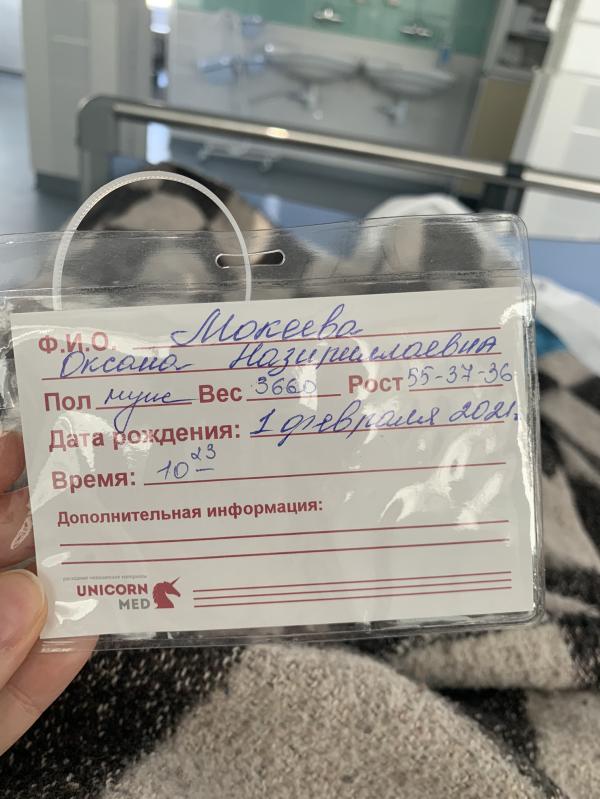 Ф.И.О. Мокеева
Оксана Назирилаевна
Пол муж Вес 3660 Рост 55-37-36
Дата рождения: 1 февраля 2021г.
Время: 10 23
Дополнительная информация:
расходные медицинские материалы
UNICORN
MED